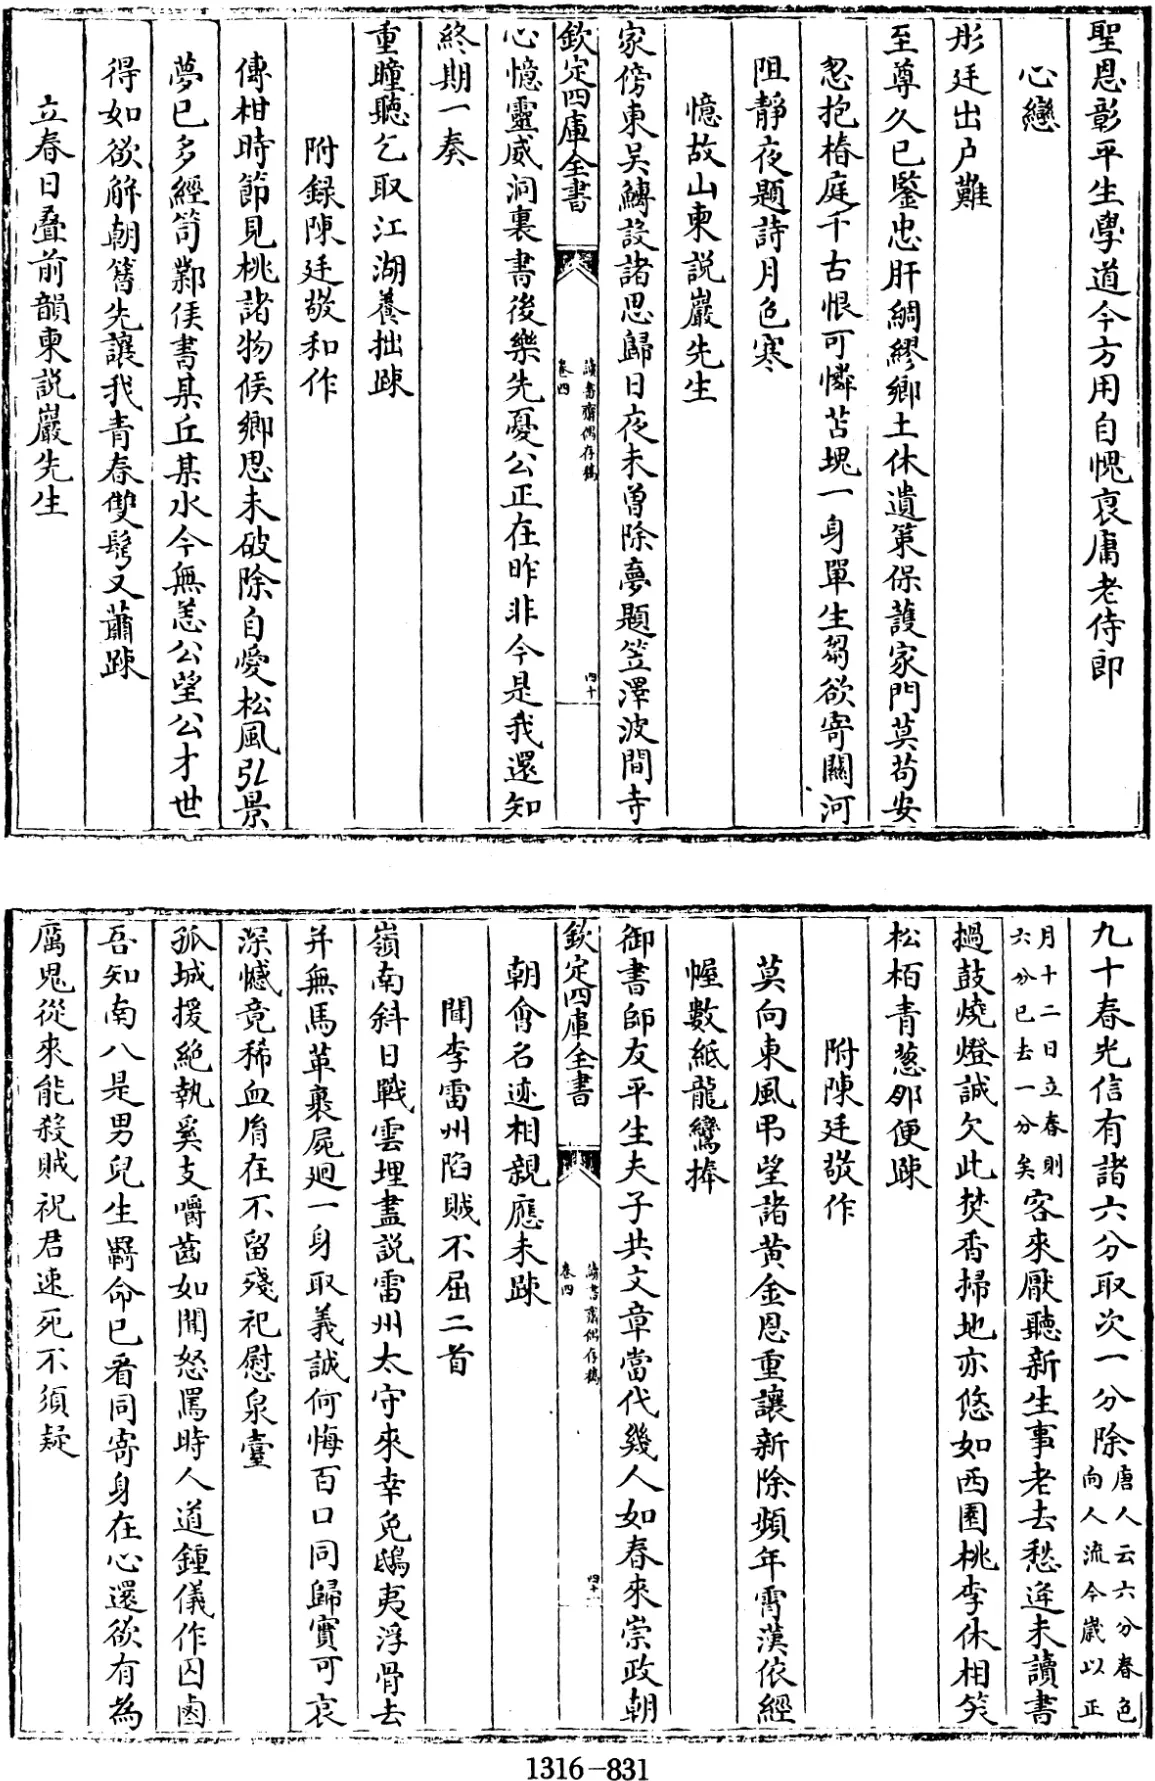 聖恩彰平生學道今方用自愧衰庸老侍郎
心戀
彤廷出户難
至尊久已鑒忠肝綢繆鄉土休遺策保護家門莫苟安
忽抱椿庭千古恨可憐苫塊一身單生芻欲寄關河
阻靜夜題詩月色寒
憶故山柬説巖先生
家傍東吳鱄設諸思歸日夜未曾除夢題笠澤波間寺
欽定四庫全書
讀書齋偶存稿
卷四
四十
心憶靈威洞裏書後樂先憂公正在昨非今是我還知
終期一奏
重瞳聽乞取江湖養拙踈
附録陳廷敬和作
傳柑時節見桃諸物候鄉思未破除自愛松風引景
夢已多經笥鄴侯書某丘某水今無恙公望公才世
得如欲解朝簪先讓我青春雙髩又蕭踈
立春日叠前韻柬説巖先生
九十春光信有諸六分取次一分除
唐人云六分春色
向人流今歲以正
月十二日立春則
六分已去一分矣
客來厭聽新生事老去愁迂未讀書
撾鼓燒燈誠欠此焚香掃地亦悠如西園桃李休相笑
松柏青葱那便踈
附陳廷敬作
莫向東風弔望諸黄金恩重讓新除頻年霄漢依經
幄數紙龍鸞捧
御書師友平生夫子共文章當代幾人如春來崇政朝
欽定四庫全書
讀書齋偶存稿
卷四
四十
朝會名迹相親應未踈
聞李雷州陷賊不屈二首
嶺南斜日戰雲埋盡説雷州太守來幸免鴟夷浮骨去
并無馬革裹屍迴一身取義誠何悔百口同歸實可哀
深憾竟稀血胤在不留殘祀慰泉臺
孤城援絶執奚支嚼齒如聞怒罵時人道鍾儀作囚鹵
吾知南八是男兒生羈命已看同寄身在心還欲有為
厲鬼從來能殺賊祝君速死不須疑
1316—831